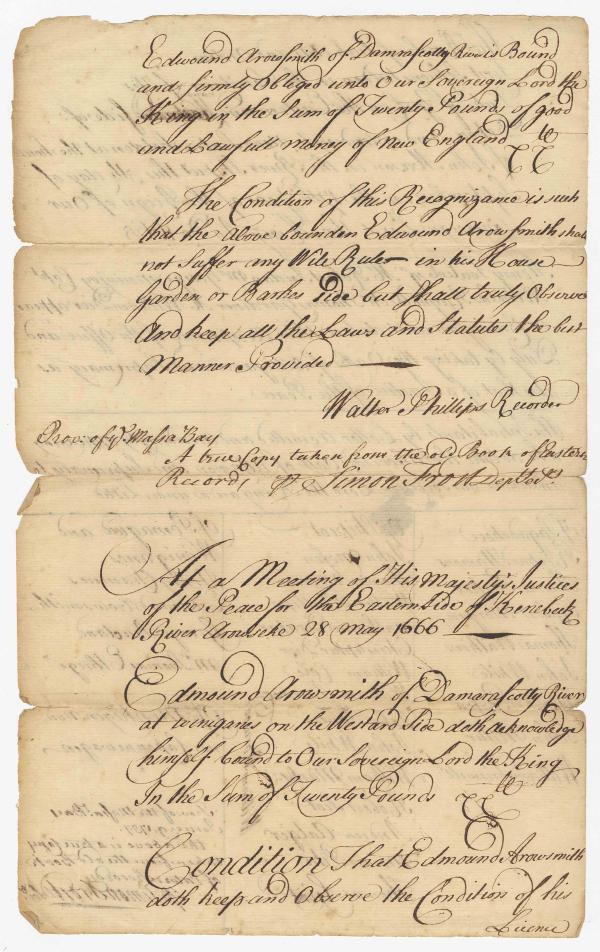 Edwound Arowsmith of Damrascotty River is Bound
and firmly Obliged unto Our Sovereign Lord the
King in the Sum of Twenty Pounds of good
and Lawfull money of New England
The Condition of this Recognizance is such
that the above bounden Edwound Arowsmith shall
not Suffer any Wile Ruler in his House
Garden or Barkes Side but shall truly Observe
And keep all the Laws and Statutes the but
Manner Provided
Walter Phillips Recorder
Prov: of ye. Massa Bay
A true Copy taken from the old Book of Eastern
Records Simon Frost
At a Meeting of His Majesty's Justices
of the Peace for the Eastern Side of Kenebeck
River Arowseke 28 May 1666
Edmound Arowsmith of Damarascotty River
at winigans on the Westard Side doth acknowledge
himself bound to Our Sovereign Lord the King
In the Sum of Twenty Pounds
Condition That Edmound Arowsmith
doth keep and Observe the Condition of his
Licence